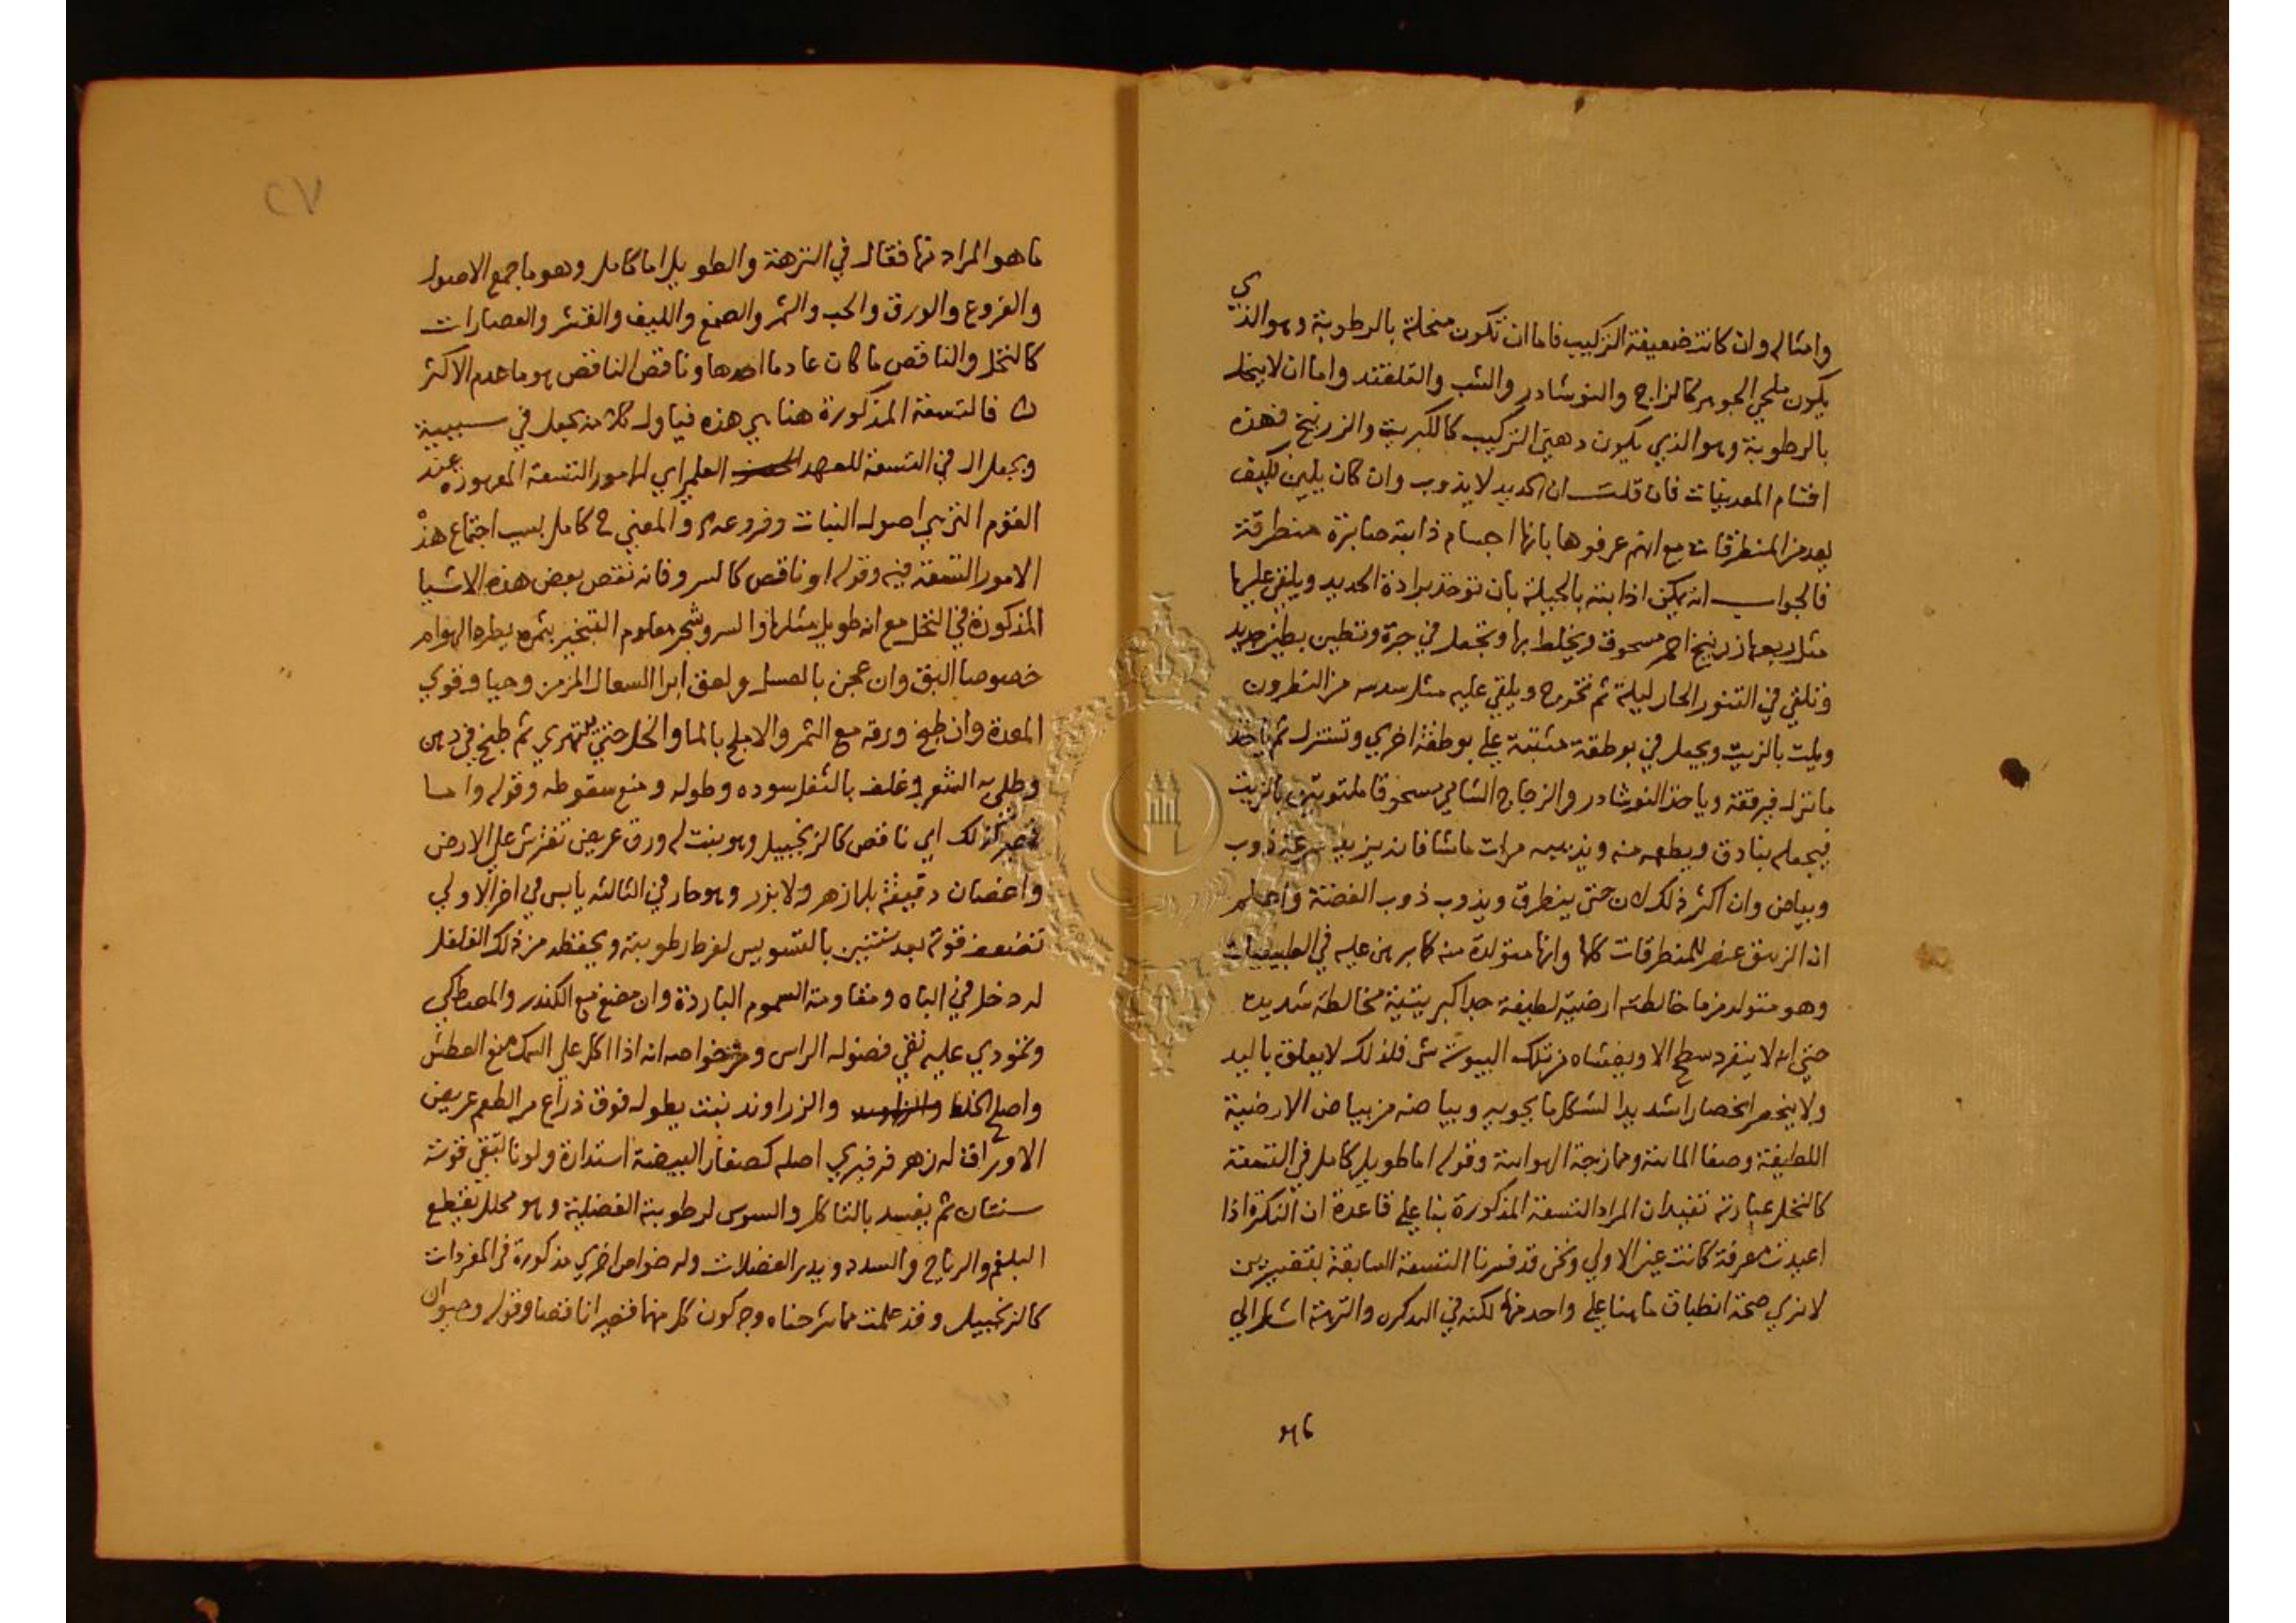 وامثاله وان كانت ضعيفة التركيب فاما ان تكون منحلة بالرطوبة وهو الذي
يكون ملحي الجوهر كالزاج والنوشادر والشب والقلقند واما ان لا ينحل
بالرطوبة وهو الذي يكون دهني التركيب كالكبريت والزرنيخ فهذه
اقسام المعدنيات فان قلت ان الحديد لا يذوب وان كان يلين فكيف
يعد من المنطرقات مع انهم عرفوها بانها اجسام ذائبة صابرة منطرقة
فالجواب انه يمكن اذابته بالحيلة بان توخذ برادة الحديد ويلقي عليها
مثل ربعها زرنيخ احمر مسحوق ويخلط بها وتجعل في جرة وتطين بطين جديد
وتلقي في التنور الحار ليلة ثم تخرج ويلقي عليه مثل سدسه من النطرون
ويلت بالزيت ويجعل في بوطقة مثبتة علي بوطقة اخري وتستنزل ثم ياخذ
ما نزل فيرققه وياخذ النوشادر والزجاج الشامي مسحوقا ملتوتين بالزيت
فيجعله بنادق ويطعمه منه ويذيبه مرات ما شا فانه يزيد سرعة ذوب
وبياض وان اكثر ذلك لان حتي ينطرق ويذوب ذوب الفضة واعلم
ان الزيبق عنصر للمنطرقات كلها وانها متولدة منه كما برهن عليه في الطبيعيات
وهو متولد من ما خالطته ارضية لطيفة جدا كبريتية مخالطة شديدة
حتي انه لا ينفرد سطح الا ويغشاه من تلك اليبوسة شي فلذلك لا يعلق باليد
ولا ينحصر انحصارا شديدا لشكل ما يحويه وبياضه من بياض الارضية
اللطيفة وصفا المائية وممازجة الهوائية وقوله اما طويل كامل في التسعة
كالنخل عبارته تفيد ان المراد التسعة المذكورة بنا علي قاعدة ان النكرة اذا
اعيدت معرفة كانت عين الاولي ونحن قد فسرنا التسعة السابقة بتفسيرين
لا نري صحة انطباق ما هنا علي واحد منها لكنه في التذكرة والنزهة اشار الي
ما هو
٢٧
ما هو المراد منها فقال في النزهة والطويل اما كامل وهو ما جمع الاصول
والفروع والورق والحب والثمر والصمغ والليف والقشر والعصارات
كالنخل والناقص ما كان عادما احدها وناقص الناقص هو ما عدم الاكثر
فالتسعة المذكورة هنا هي هذه فياول كلامه بجعل في سببية
ويجعل ال في التسعة للعهد العلمي اي للامور التسعة المعهودة عند
القوم التي هي اصول النبات وفروعه والمعني ح كامل بسبب اجتماع هذه
الامور التسعة فيه وقوله او ناقص كالسرو فانه نقص بعض هذه الاشيا
المذكورة في النخل مع انه طويل مثلها والسرو شجر معلوم التبخير بثمره يطرد الهوام
خصوصا البق وان عجن بالعسل ولعق ابرا السعال المزمن وحيا وقوي
المعدة وان طبخ ورقه مع الثمر والاملج بالما والخل حتي يتهري ثم طبخ في دهن
وطلي به الشعر وغلف بالثفل سوده وطوله ومنع سقوطه وقوله واما
قصير كذلك اي ناقص كالزنجبيل وهو نبت له ورق عريض تفترش علي الارض
واغصان دقيقة بلا زهر ولا بزر وهو حار في الثالثة يابس في اخر الاولي
تضعف قوته بعد سنتين بالتسويس لفرط رطوبته ويحفظه من ذلك الفلفل
له دخل في الباه ومقاومة السموم الباردة وان مضغ مع الكندر والمصطكي
وتمودي عليه نقي فضول الراس ومن خواصه انه اذا اكل علي السمك منع العطش
واصلح الخلط والزراوند نبت يطول فوق ذراع مر الطعم عريض
الاوراق له زهر فرفيري اصله كصغار البيضة استدارة ولونا تبقي قوته
سنتان ثم يفسد بالتاكل والسوس لرطوبته الفضلية وهو محلل يقطع
البلغم والرياح والسدد ويدر الفضلات وله خواص اخري مذكورة في المفردات
كالزنجبيل وقد علمت مما شرحناه وجه كون كل منهما قصيرا ناقصا وقوله وحيوان